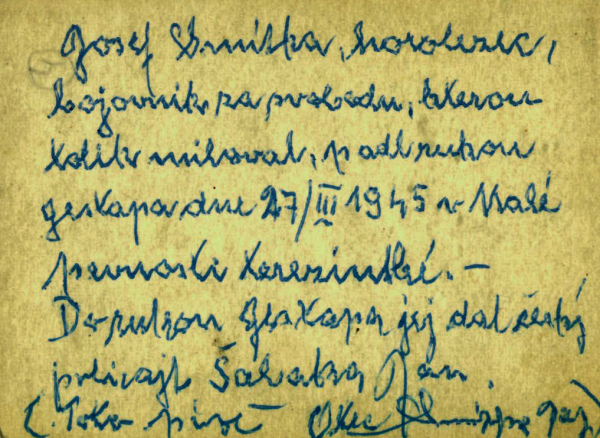 Josef Smitka, horolezec,
bojovník za svobodu, kterou
tolik miloval, padl rukou
gestapa dne 27/III 1945 v Malé
pevnosti terezínské. –
Do rukou gestapa jej dal český
policajt Šabatka Jan
(Toto píše Otec Smitka